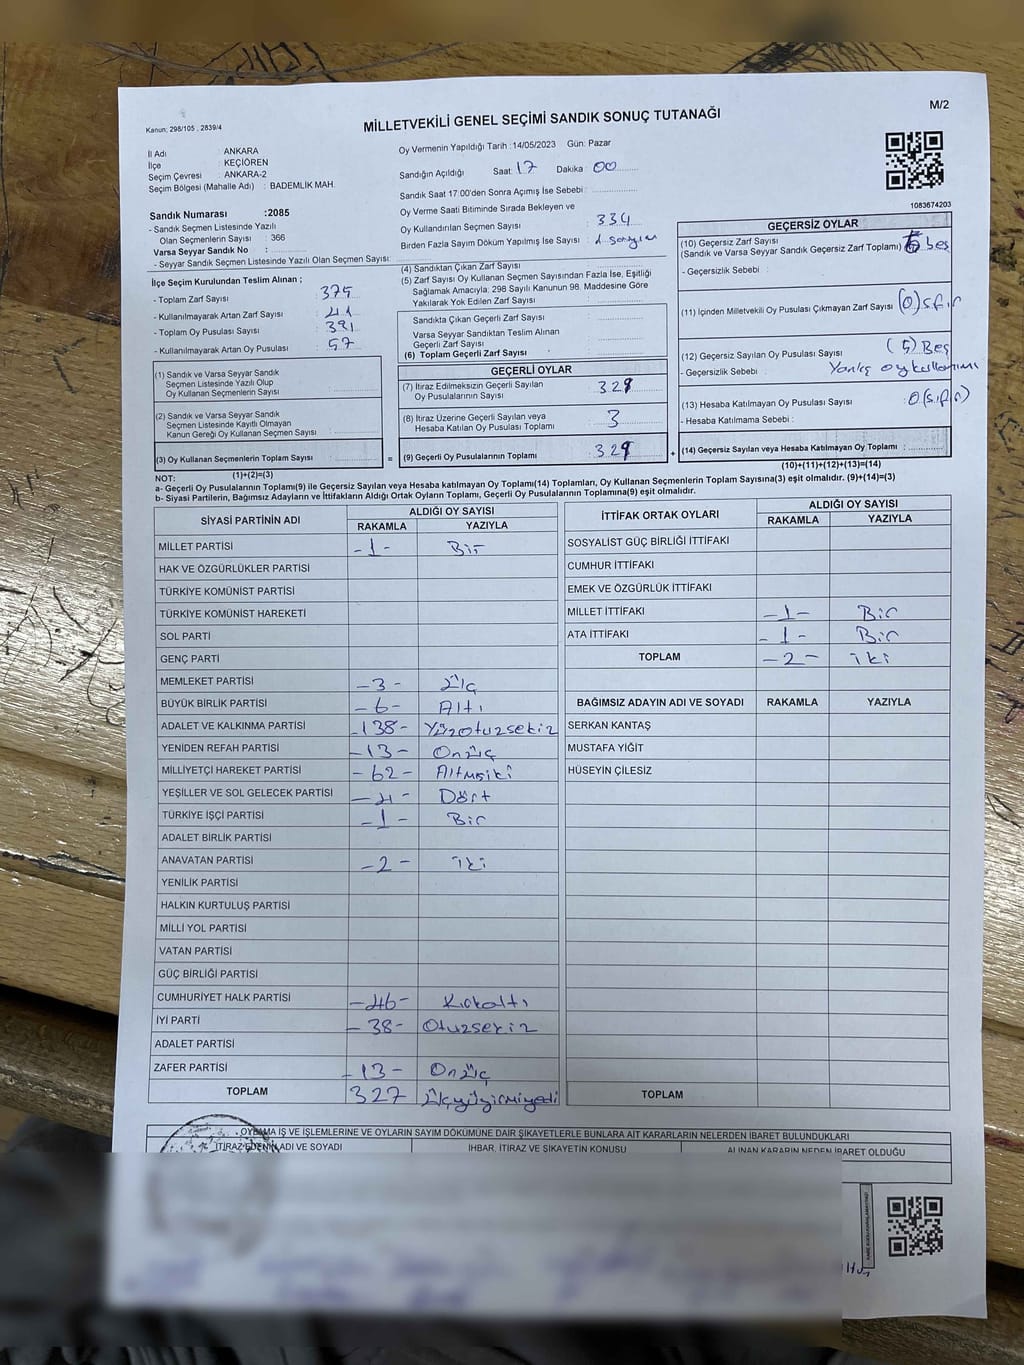 M/2
Kanun; 298/105 , 2839/4
MİLLETVEKİLİ GENEL SEÇİMİ SANDIK SONUÇ TUTANAĞI
İl Adı : ANKARA
İlçe : KEÇİÖREN
Seçim Çevresi : ANKARA-2
Seçim Bölgesi (Mahalle Adı) : BADEMLİK MAH.
Sandık Numarası :2085
- Sandık Seçmen Listesinde Yazılı
Olan Seçmenlerin Sayısı : 366
Varsa Seyyar Sandık No :
- Seyyar Sandık Seçmen Listesinde Yazılı Olan Seçmen Sayısı:
Oy Vermenin Yapıldığı Tarih :14/05/2023 Gün: Pazar
Sandığın Açıldığı Saat: 17 Dakika: 00
Sandık Saat 17:00'den Sonra Açımış İse Sebebi :
Oy Verme Saati Bitiminde Sırada Bekleyen ve
Oy Kullandırılan Seçmen Sayısı : 334
Birden Fazla Sayım Döküm Yapılmış İse Sayısı :
1083674203
İlçe Seçim Kurulundan Teslim Alınan ;
- Toplam Zarf Sayısı : 375
- Kullanılmayarak Artan Zarf Sayısı : 41
- Toplam Oy Pusulası Sayısı : 391
- Kullanılmayarak Artan Oy Pusulası : 57
(1) Sandık ve Varsa Seyyar Sandık
Seçmen Listesinde Yazılı Olup
Oy Kullanan Seçmenlerin Sayısı :
(2) Sandık ve Varsa Seyyar Sandık
Seçmen Listesinde Kayıtlı Olmayan
Kanun Gereği Oy Kullanan Seçmen Sayısı :
(3) Oy Kullanan Seçmenlerin Toplam Sayısı :
(1)+(2)=(3)
(4) Sandıktan Çıkan Zarf Sayısı :
(5) Zarf Sayısı Oy Kullanan Seçmen Sayısından Fazla İse, Eşitliği
Sağlamak Amacıyla; 298 Sayılı Kanunun 98. Maddesine Göre
Yakılarak Yok Edilen Zarf Sayısı :
Sandıkta Çıkan Geçerli Zarf Sayısı :
Varsa Seyyar Sandıktan Teslim Alınan
Geçerli Zarf Sayısı :
(6) Toplam Geçerli Zarf Sayısı :
=
GEÇERLİ OYLAR
(7) İtiraz Edilmeksizin Geçerli Sayılan
Oy Pusulalarının Sayısı :
(8) İtiraz Üzerine Geçerli Sayılan veya
Hesaba Katılan Oy Pusulası Toplamı : 3
(9) Geçerli Oy Pusulalarının Toplamı : 329
+
GEÇERSİZ OYLAR
(10) Geçersiz Zarf Sayısı
(Sandık ve Varsa Seyyar Sandık Geçersiz Zarf Toplamı) : 5 beş
- Geçersizlik Sebebi :
(11) İçinden Milletvekili Oy Pusulası Çıkmayan Zarf Sayısı : (0) sıfır
(12) Geçersiz Sayılan Oy Pusulası Sayısı : (5) Beş
- Geçersizlik Sebebi : Yanlış oy kullanımı
(13) Hesaba Katılmayan Oy Pusulası Sayısı : 0 (sıfır)
- Hesaba Katılmama Sebebi :
(14) Geçersiz Sayılan veya Hesaba Katılmayan Oy Toplamı :
(10)+(11)+(12)+(13)=(14)
NOT:
a- Geçerli Oy Pusulalarının Toplamı(9) ile Geçersiz Sayılan veya Hesaba katılmayan Oy Toplamı(14) Toplamları, Oy Kullanan Seçmenlerin Toplam Sayısına(3) eşit olmalıdır. (9)+(14)=(3)
b- Siyasi Partilerin, Bağımsız Adayların ve İttifakların Aldığı Ortak Oyların Toplamı, Geçerli Oy Pusulalarının Toplamına(9) eşit olmalıdır.
SİYASİ PARTİNİN ADI ALDIĞI OY SAYISI
RAKAMLA YAZIYLA
MİLLET PARTİSİ -1- Bir
HAK VE ÖZGÜRLÜKLER PARTİSİ
TÜRKİYE KOMÜNİST PARTİSİ
TÜRKİYE KOMÜNİST HAREKETİ
SOL PARTİ
GENÇ PARTİ
MEMLEKET PARTİSİ -3- Üç
BÜYÜK BİRLİK PARTİSİ -6- Altı
ADALET VE KALKINMA PARTİSİ -138- Yüzotuzsekiz
YENİDEN REFAH PARTİSİ -13- Onüç
MİLLİYETÇİ HAREKET PARTİSİ -62- Altmışiki
YEŞİLLER VE SOL GELECEK PARTİSİ -4- Dört
TÜRKİYE İŞÇİ PARTİSİ -1- Bir
ADALET BİRLİK PARTİSİ
ANAVATAN PARTİSİ -2- iki
YENİLİK PARTİSİ
HALKIN KURTULUŞ PARTİSİ
MİLLİ YOL PARTİSİ
VATAN PARTİSİ
GÜÇ BİRLİĞİ PARTİSİ
CUMHURİYET HALK PARTİSİ -46- Kırkaltı
İYİ PARTİ -38- Otuzsekiz
ADALET PARTİSİ
ZAFER PARTİSİ -13- Onüç
TOPLAM 327 Üçyüzyirmiyedi
İTTİFAK ORTAK OYLARI ALDIĞI OY SAYISI
RAKAMLA YAZIYLA
SOSYALİST GÜÇ BİRLİĞİ İTTİFAKI
CUMHUR İTTİFAKI
EMEK VE ÖZGÜRLÜK İTTİFAKI
MİLLET İTTİFAKI -1- Bir
ATA İTTİFAKI -1- Bir
TOPLAM -2- iki
BAĞIMSIZ ADAYIN ADI VE SOYADI RAKAMLA YAZIYLA
SERKAN KANTAŞ
MUSTAFA YİĞİT
HÜSEYİN ÇİLESİZ
TOPLAM
OYLAMA İŞ VE İŞLEMLERİNE VE OYLARIN SAYIM DÖKÜMÜNE DAİR ŞİKAYETLERLE BUNLARA AİT KARARLARIN NELERDEN İBARET BULUNDUKLARI
İTİRAZ EDENİN ADI VE SOYADI İHBAR, İTİRAZ VE ŞİKAYETİN KONUSU ALINAN KARARIN NEDEN İBARET OLDUĞU